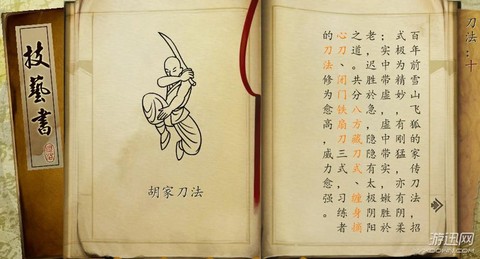 刀法：十
百年前雪山飞狐的家传刀法，招
式极为精妙，有刚猛，亦有阴柔
；实中带虚，虚中带实，嫩胜於
老，迟胜於急，隐隐有太极阴阳
之道。共分八方藏刀式、缠身摘
心刀、闭门铁扇刀三式，习练者
的刀法修为愈高，威力愈强。
胡家刀法
技藝書
游迅网